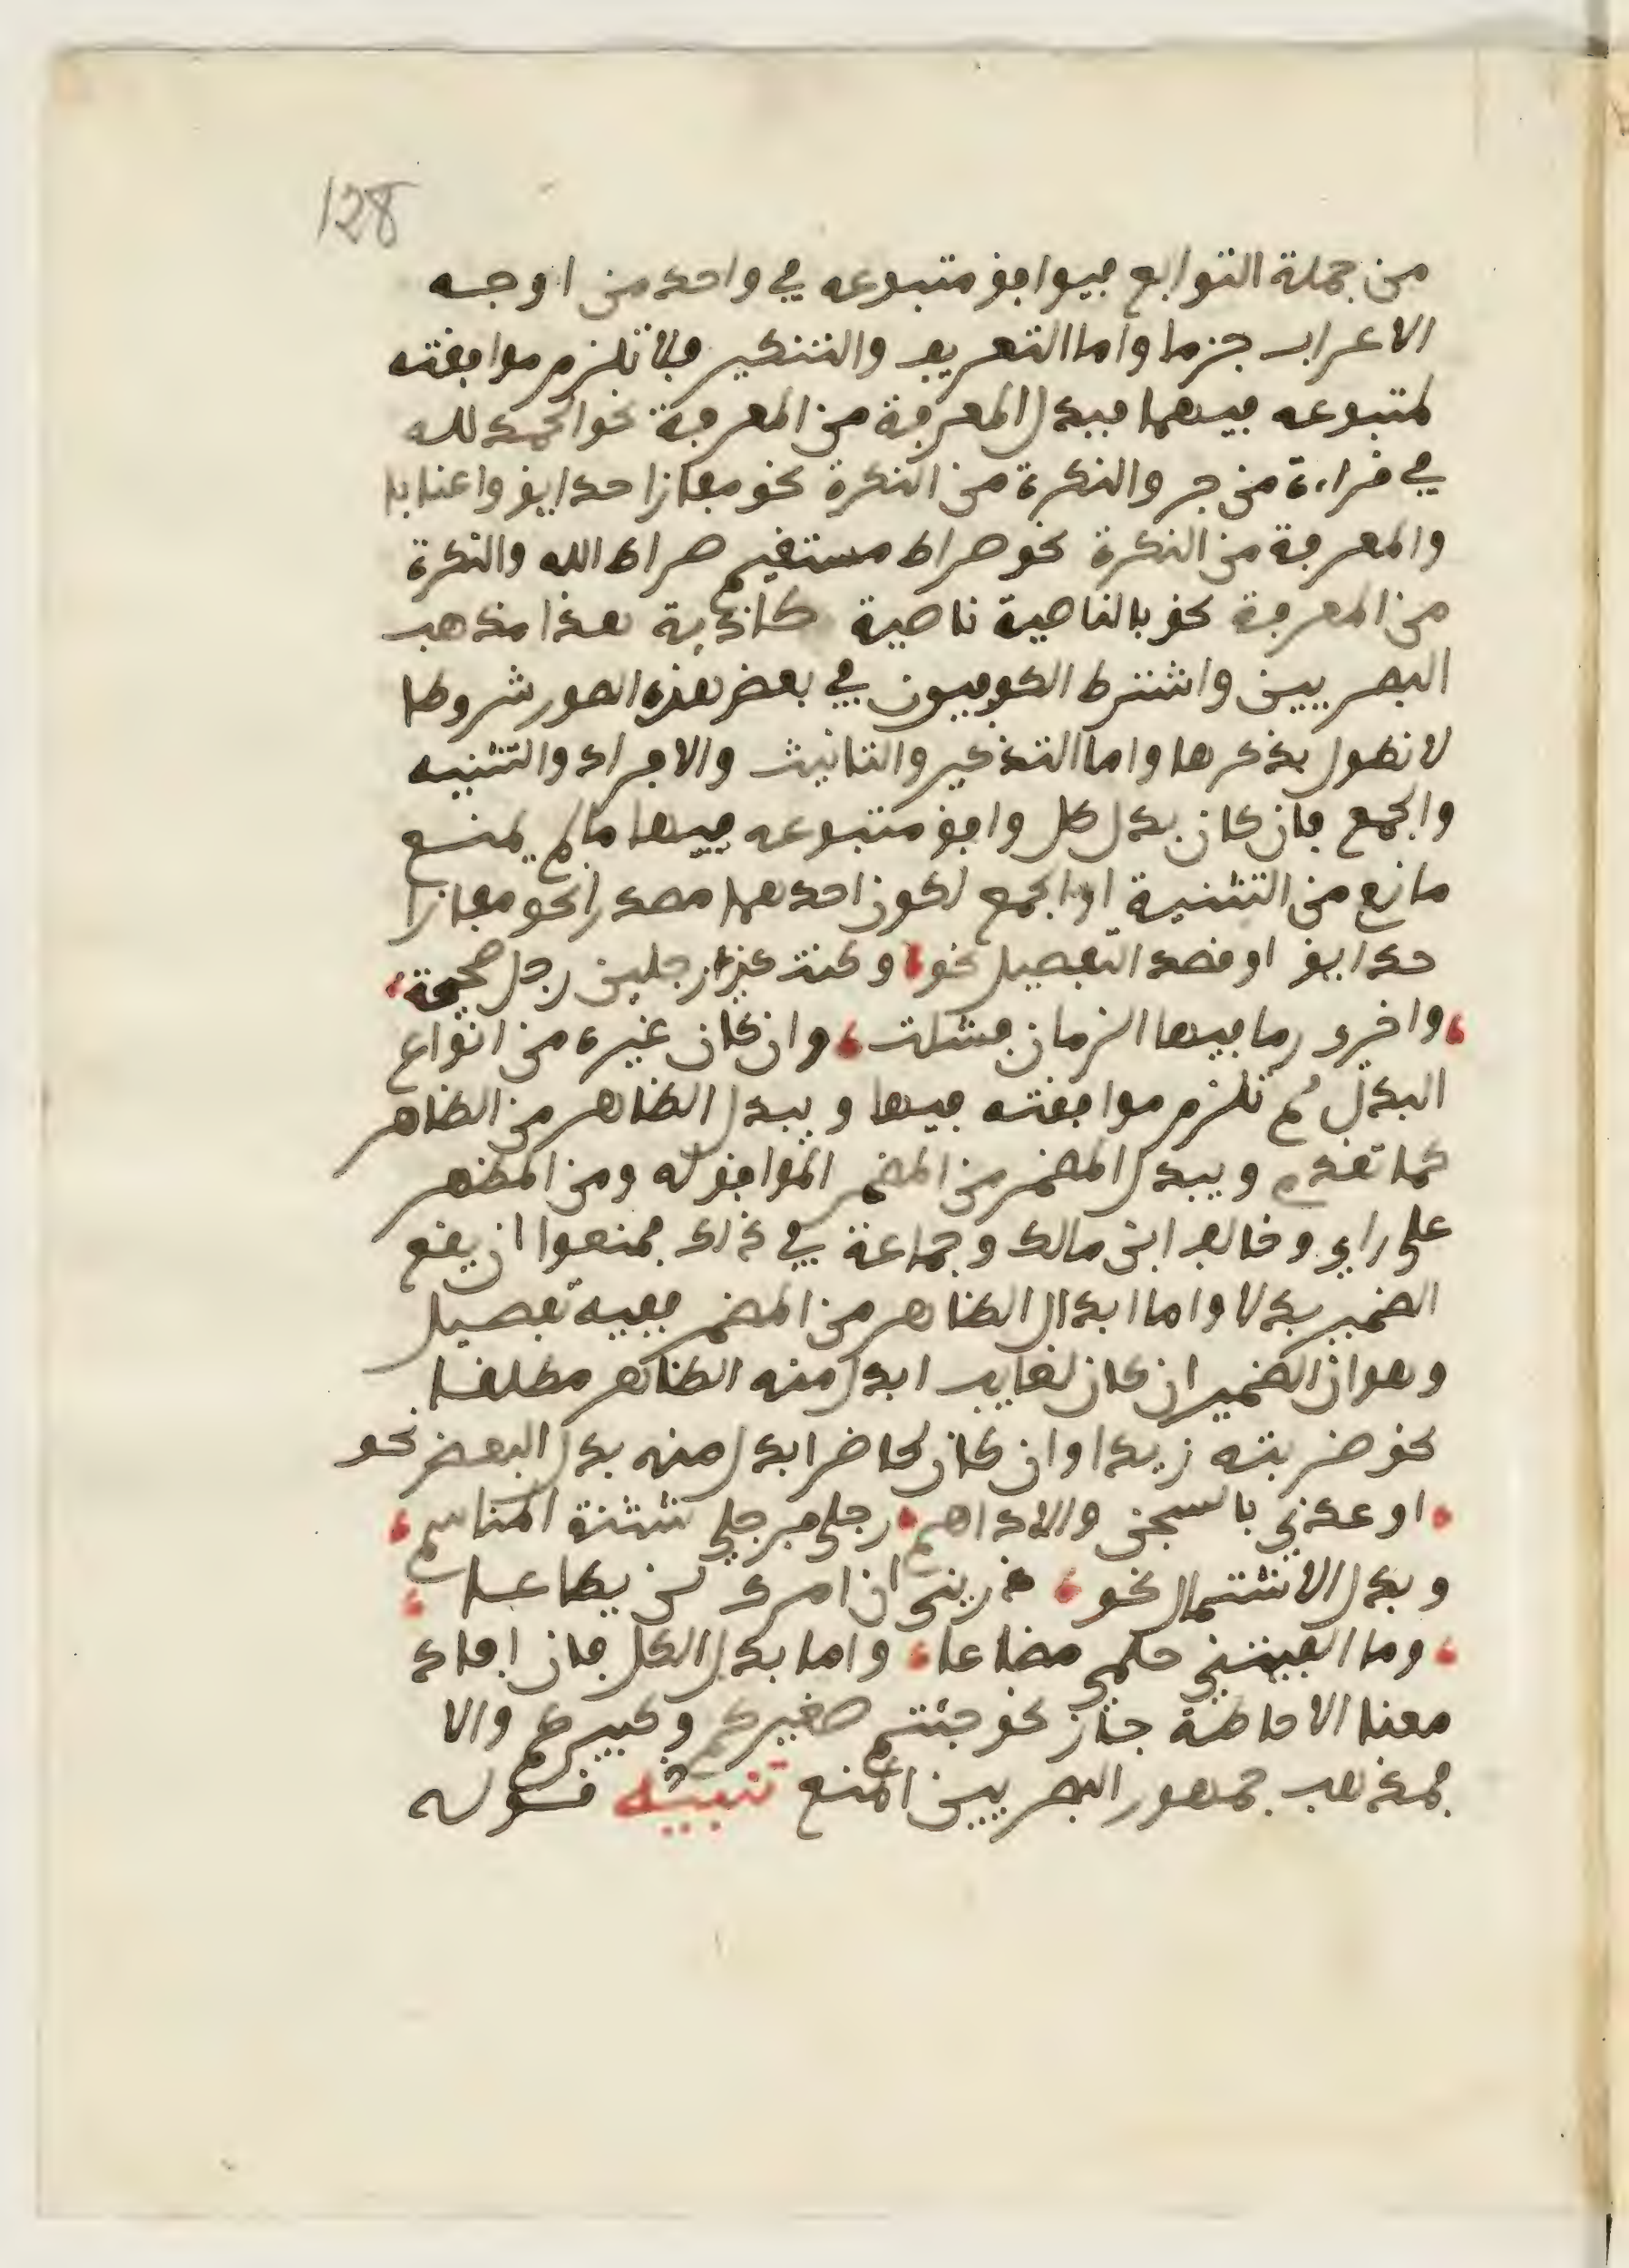 128
من جملة التوابع فيوافق متبوعه في واحد من اوجه
الاعراب جزما واما التعريف والتنكير فلا تلزم موافقته
لمتبوعه فيهما فيبدل المعرفة من المعرفة نحو الحمد لله
في قراءة من جر والنكرة من النكرة نحو مفازا حدايق واعنابا
والمعرفة من النكرة نحو صراط مستقيم صراط الله والنكرة
من المعرفة نحو بالناصية ناصية كاذبة هذا مذهب
البصريين واشترط الكوفيون في بعض هذه الصور شروطا
لا نطول بذكرها واما التذكير والتانيث والافراد والتثنيه
والجمع فان كان بدل كل وافق متبوعه فيها ما لم يمنع
مانع من التثنية او الجمع لكون احدهما مصدرا نحو مفازا
حدايق او قصد التفصيل نحو، وكنت كذي رجلين رجل صحيحة،
،واخرى رما فيها الزمان فشلت، وان كان غيره من انواع
البدل لم تلزم موافقته فيها ويبدل الظاهر من الظاهر
كما تقدم ويبدل المضمر من المضمر الموافق له ومن المظهر
على راي وخالف ابن مالك وجماعة في ذلك فمنعوا ان يقع
الضمير بدلا واما ابدال الظاهر من المضمر ففيه تفصيل
وهو ان الضمير ان كان لغايب ابدل منه الظاهر مطلقا
نحو ضربته زيدا وان كان لحاضر ابدل منه بدل البعض نحو
،اوعدني بالسجن والاداهم، رجلي فرجلي شثنة المناسم،
وبدل الاشتمال نحو، ذريني ان امرك لن يطاعا،
،وما الفيتني حلمي مضاعا، واما بدل الكل فان افاد
معنا الاحاطة جاز نحو جئتم صغيركم وكبيركم والا
فمذهب جمهور البصريين المنع تنبيه قوله